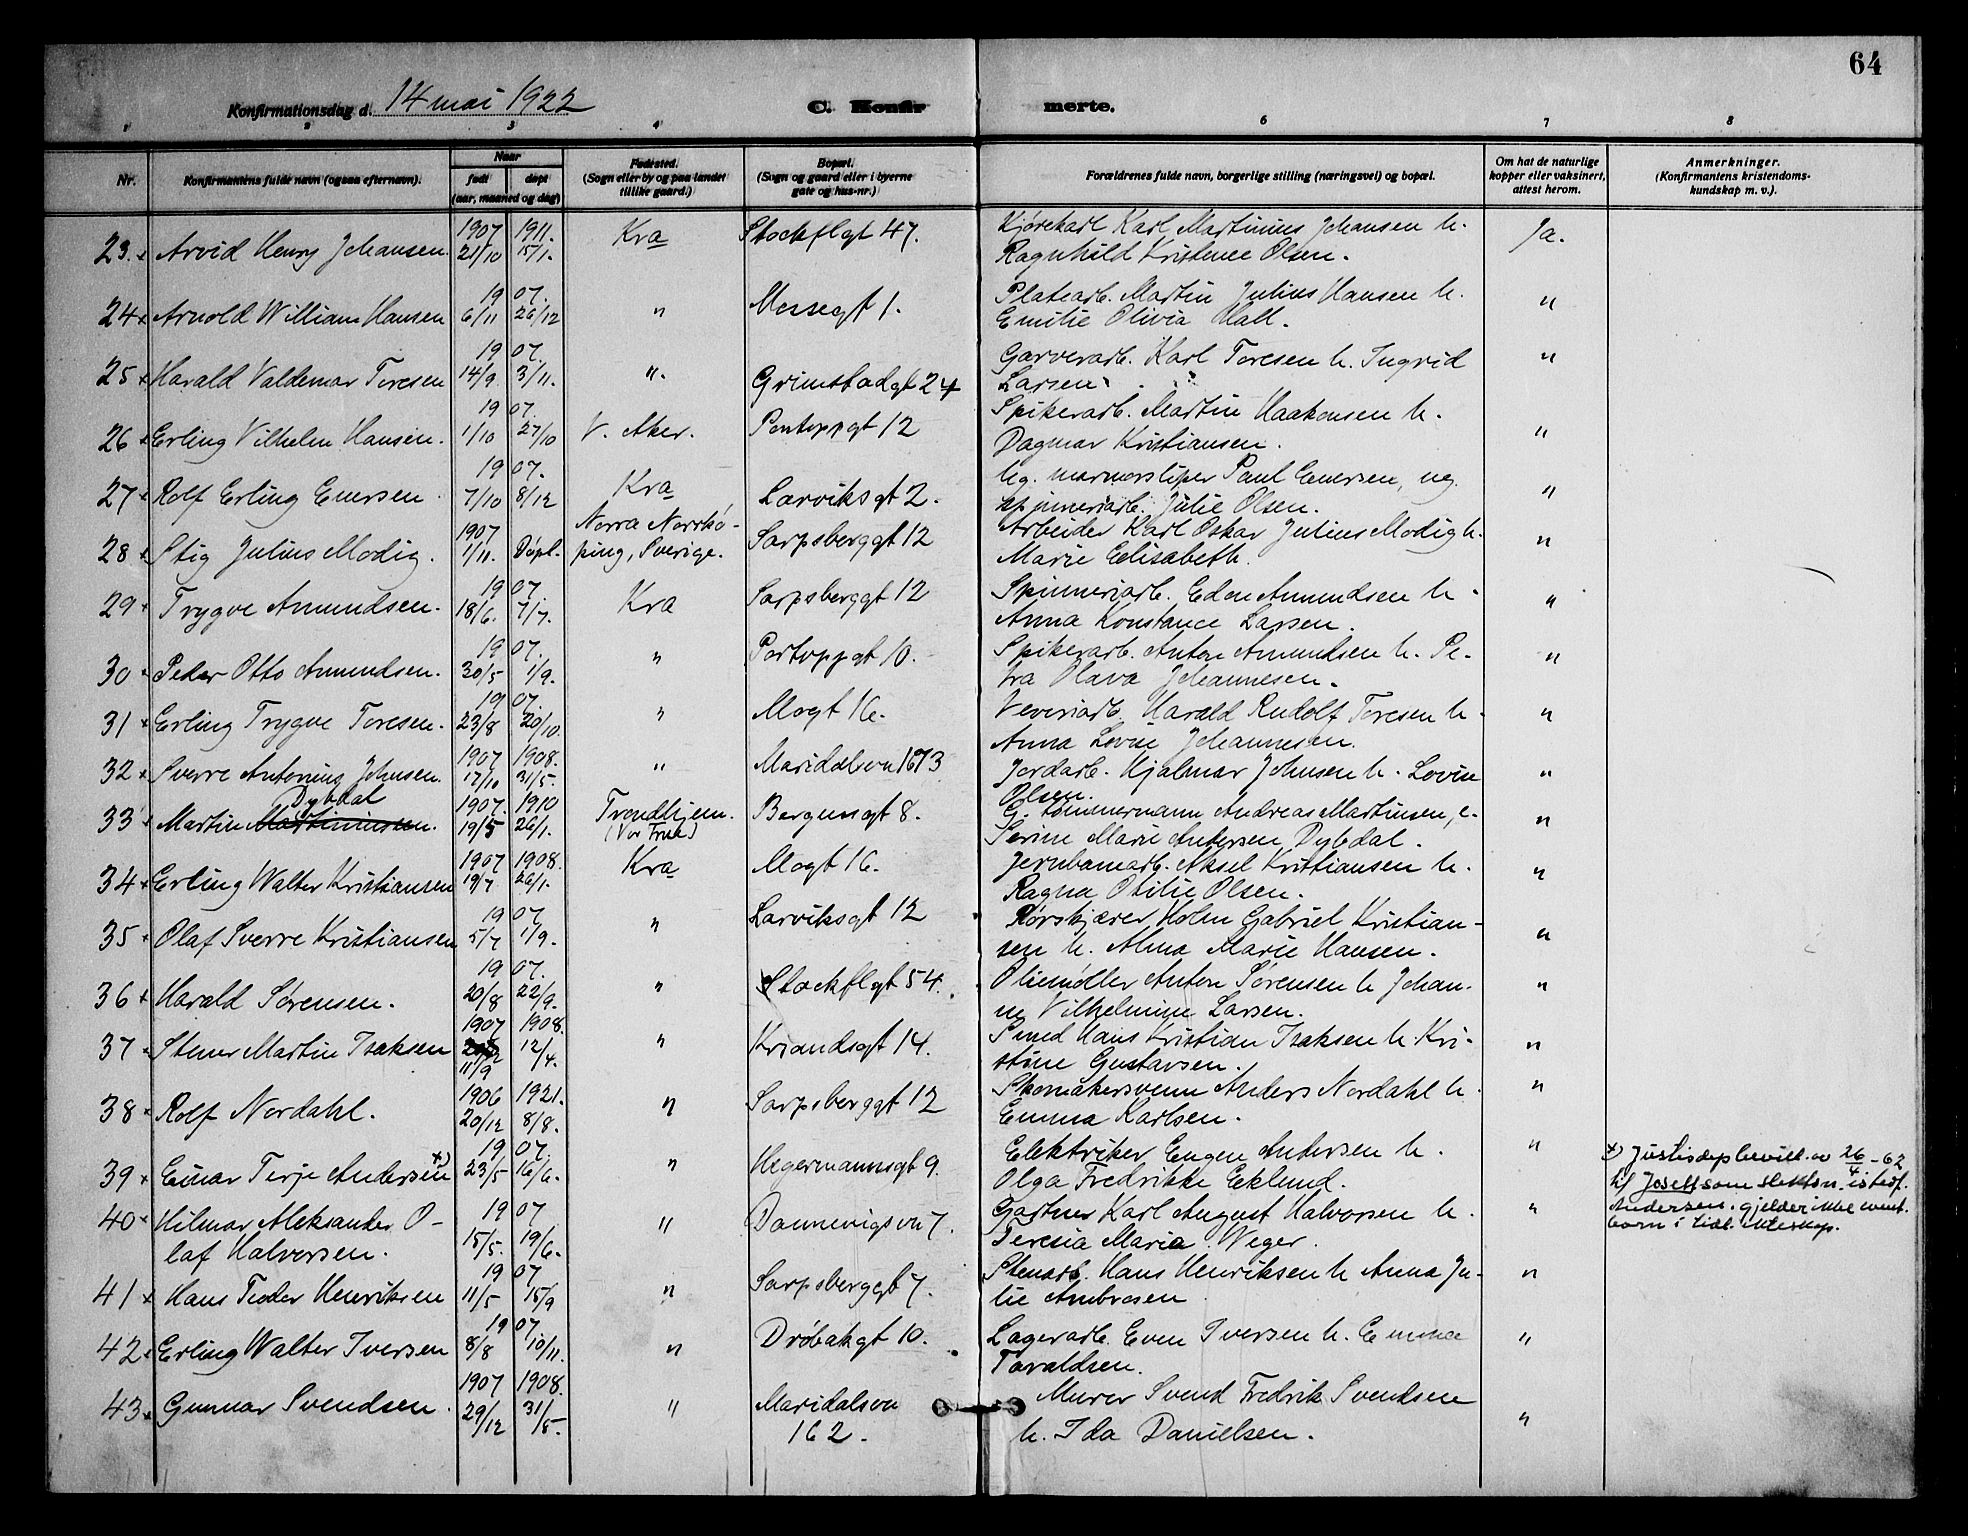 64
Konfirmationsdag d. 14 mai 1922
C. Konfirmerte.
1 2 3 4 6 7 8
Nr.
Konfirmantens fulde navn (ogsaa efternavn).
Naar
født døpt
(aar, maaned og dag)
Fødested.
(Sogn eller by og paa landet
tillike gaard.)
Bopæl.
(Sogn og gaard eller i byerne
gate og hus-nr.)
Forældrenes fulde navn, borgerlige stilling (næringsvei) og bopæl.
Om hat de naturlige
kopper eller vaksinert,
attest herom.
Anmerkninger.
(Konfirmantens kristendoms-
kundskap m. v.).
1907 1911. Kra Stockflgt 47. Kjørekarl Karl Martinius Johansen h. Ja.
23. Arvid Henry Johansen. 21/10 15/1. Ragnhild Kristence Olsen.
19 07. Platearb. Martin Julius Hansen h.
24 Arnold William Hansen 6/11 26/12 " Mosegt 1. Emilie Olivia Hall. "
19 07. Garverarb. Karl Toresen h. Ingrid "
25 Harald Valdemar Toresen 14/9 3/11. ". Grimstadgt 24 Larsen.
19 07. Spikerarb. Martin Haakonsen h.
26 Erling Vilhelm Hansen. 1/10 27/10 V. Aker. Pontoppgt 12 Dagmar Kristiansen. "
19 07. Ug. marmorsliper Paul Enersen, ug.
27 Rolf Erling Enersen. 7/10 8/12 Kra Larviksgt 2. spinneriarb. Julie Olsen. "
1907 Norra Norrkö- Sarpsborggt 12 Arbeider Karl Oskar Julius Modig h. "
28 Stig Julius Modig. 1/11. Døpt. ping, Sverige. Marie Elisabeth.
19 07 Sarpsborggt 12 Spinneriarb. Edon Amundsen h. "
29 Trygve Amundsen. 18/6. 7/7. Kra Anna Konstance Larsen.
19 07. Pontoppgt 10. Spikerarb. Anton Amundsen h. Pe-
30 Peder Otto Amundsen. 20/5 1/9. " tra Olava Johannesen. "
19 07. Mogt 16. Veveriarb. Harald Rudolf Toresen h.
31 Erling Trygve Toresen. 23/8 20/10. " Anna Lovise Johannesen. "
1907 1908. Maridalsvn 173 Jordarb. Hjalmar Johnsen h. Lovise
32 Sverre Antonius Johnsen. 17/10 31/5. " Olsen. "
Dybdal 1907. 1910 Trondhjem. Bergensgt 8. G. tømmermann Andreas Martinsen, e.
33 Martin Martiniusen. 19/5 26/1. (Vor Frue) Serine Marie Andersen Dybdal. "
1907 1908. Kra Mogt 16. Jernbanearb. Aksel Kristiansen h.
34 Erling Walter Kristiansen 19/7 26/1. Ragna Otilie Olsen. "
19 07. Larviksgt 12 Rørskjærer Holm Gabriel Kristian-
35 Olaf Sverre Kristiansen 5/7 1/9. " sen h. Alma Marie Hansen. "
19 07. Stockflgt 54. Oliemøller Anton Sørensen h Johan-
36 Harald Sørensen. 20/8 22/9. " ne Vilhelmine Larsen. "
1907 1908. Smed Hans Kristian Isaksen h. Kri-
37 Stener Martin Isaksen 11/9 12/4. " Kr.sandsgt 14. stine Gustavsen. "
1906 1921. Sarpsborggt 12 Skomakersvenn Anders Nordahl h. "
38 Rolf Nordahl. 20/12 8/8. " Emma Karlsen.
19 07. Hegermannsgt 9. Elektriker Eugen Andersen h. "
39 Einar Terje Andersen x) 23/5 16/6. " Olga Fredrikke Eklund.
x) Justisdep bevill. av 26/4 -62
til Josefsom slektsn. istedf.
Andersen. gjelder ikke event.
barn i tidl. ekteskap.
40 Hilmar Aleksander O- 19 07 Dannevigsvn 7. Gartner Karl August Halvorsen h. "
laf Halvorsen. 15/5. 19/6. " Teresia Maria Weger.
19 07 Sarpsborggt 7. Stenarb. Hans Henriksen h Anna Ju- "
41 Hans Teodor Henriksen 11/5 15/9 " lie Ambrosen
19 07. Drøbakgt 10. Lagerarb. Even Iversen h. Emma "
42 Erling Walter Iversen 8/8 10/11. " Taraldsen.
1907 1908. Maridalsvn Murer Svend Fredrik Svendsen
43 Gunnar Svendsen. 29/12 31/5. " 162. h. Ida Danielsen. "